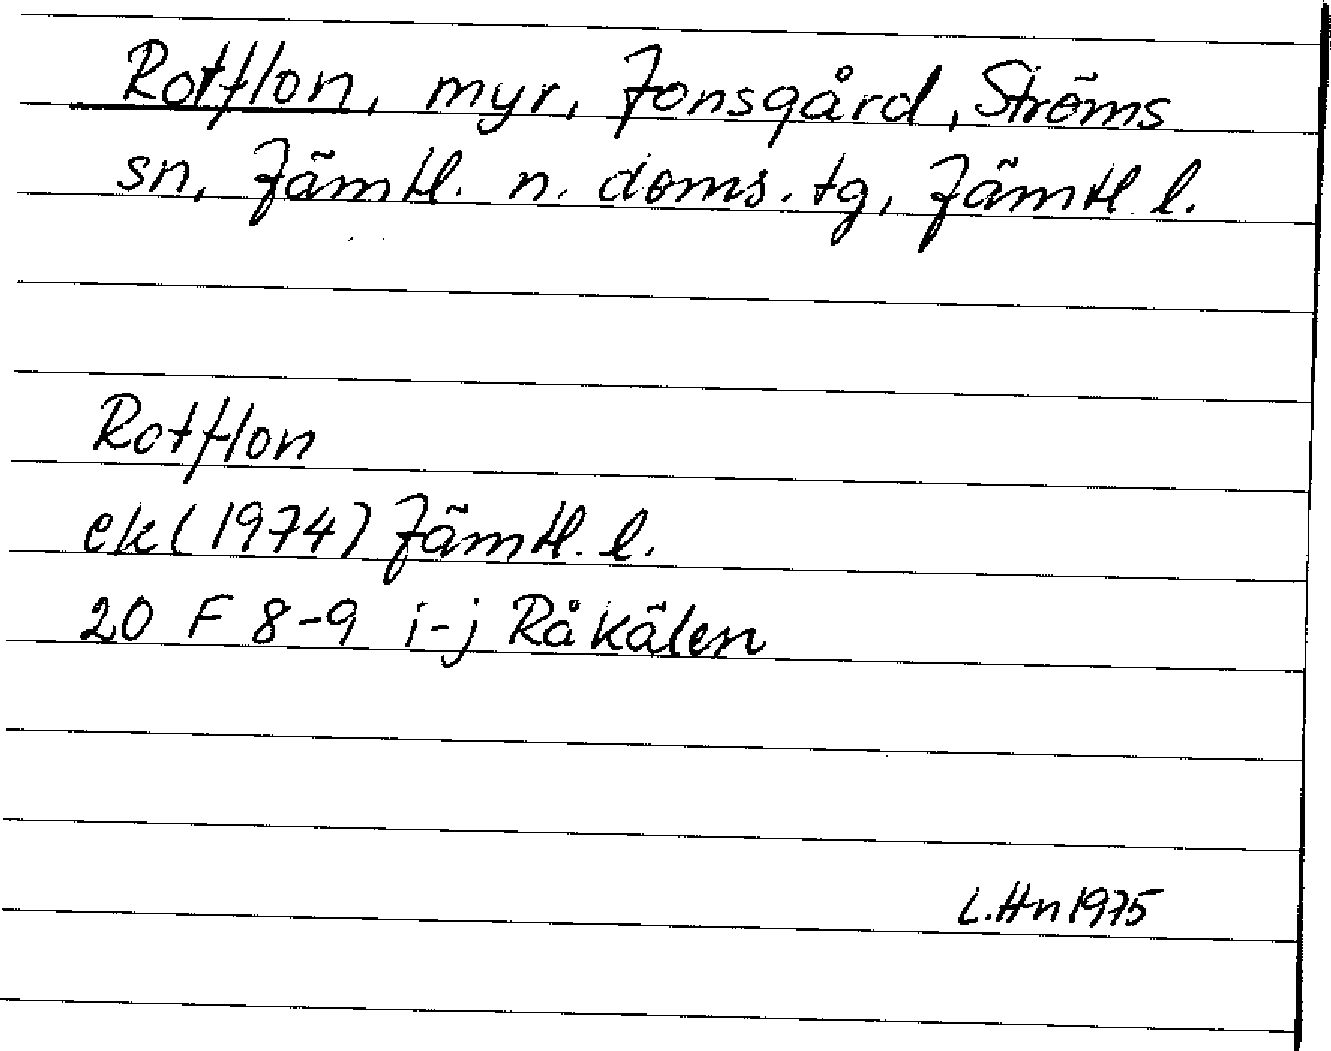 Rotflon, myr, Jonsgård, Ströms
sn, Jämtl. n. doms. tg, Jämtl l.
Rotflon
ek (1974) Jämtl. l.
20 F 8-9 i-j Råkälen
L.Hn 1975